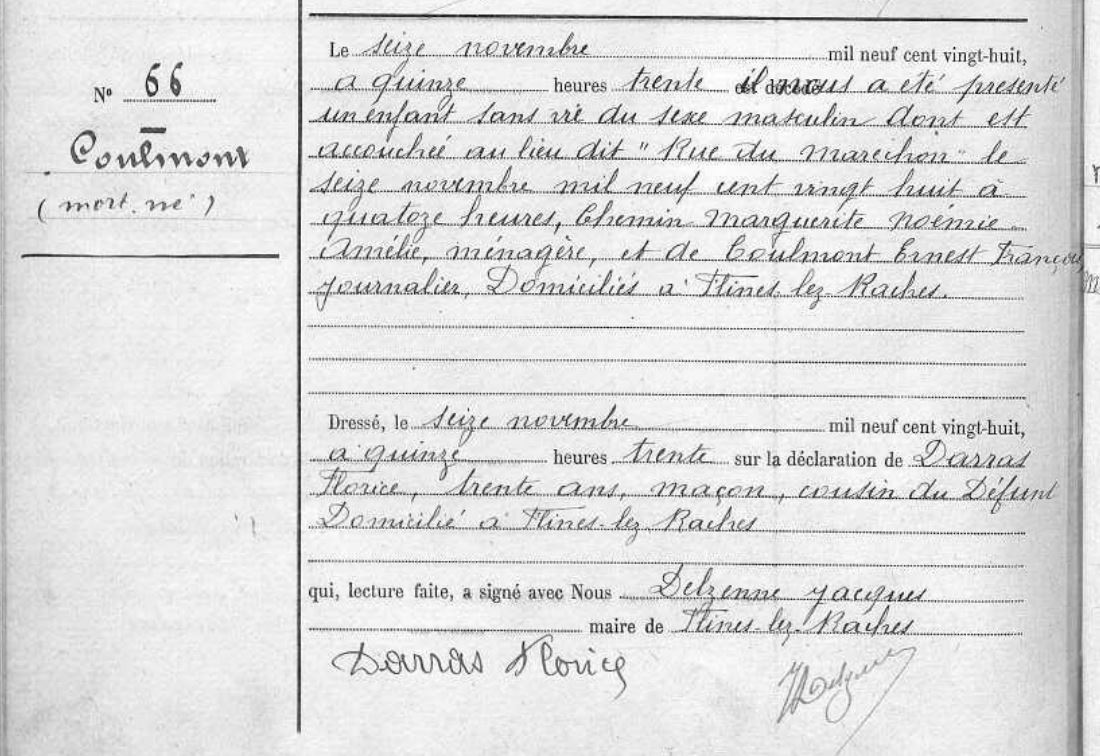 N° 66
Coulmont
(mort-né)
Le seize novembre mil neuf cent vingt-huit,
a quinze heures trente il nous a été presenté
un enfant sans vie du sexe masculin dont est
accouchée au lieu dit "Rue du Marcichon" le
seize novembre mil neuf cent vingt huit à
quatoze heures, Chemin Marguerite Noémie
Amélie, ménagère, et de Coulmont Ernest François
journalier, Domiciliés a Flines lez Raches.
Dressé, le seize novembre mil neuf cent vingt-huit,
a quinze heures trente sur la déclaration de Darras
Florice, trente ans, maçon, cousin du Défunt
Domicilié à Flines-lez Raches
qui, lecture faite, a signé avec Nous Delzenne Jacques
maire de Flines-lez-Raches
Darras Florice